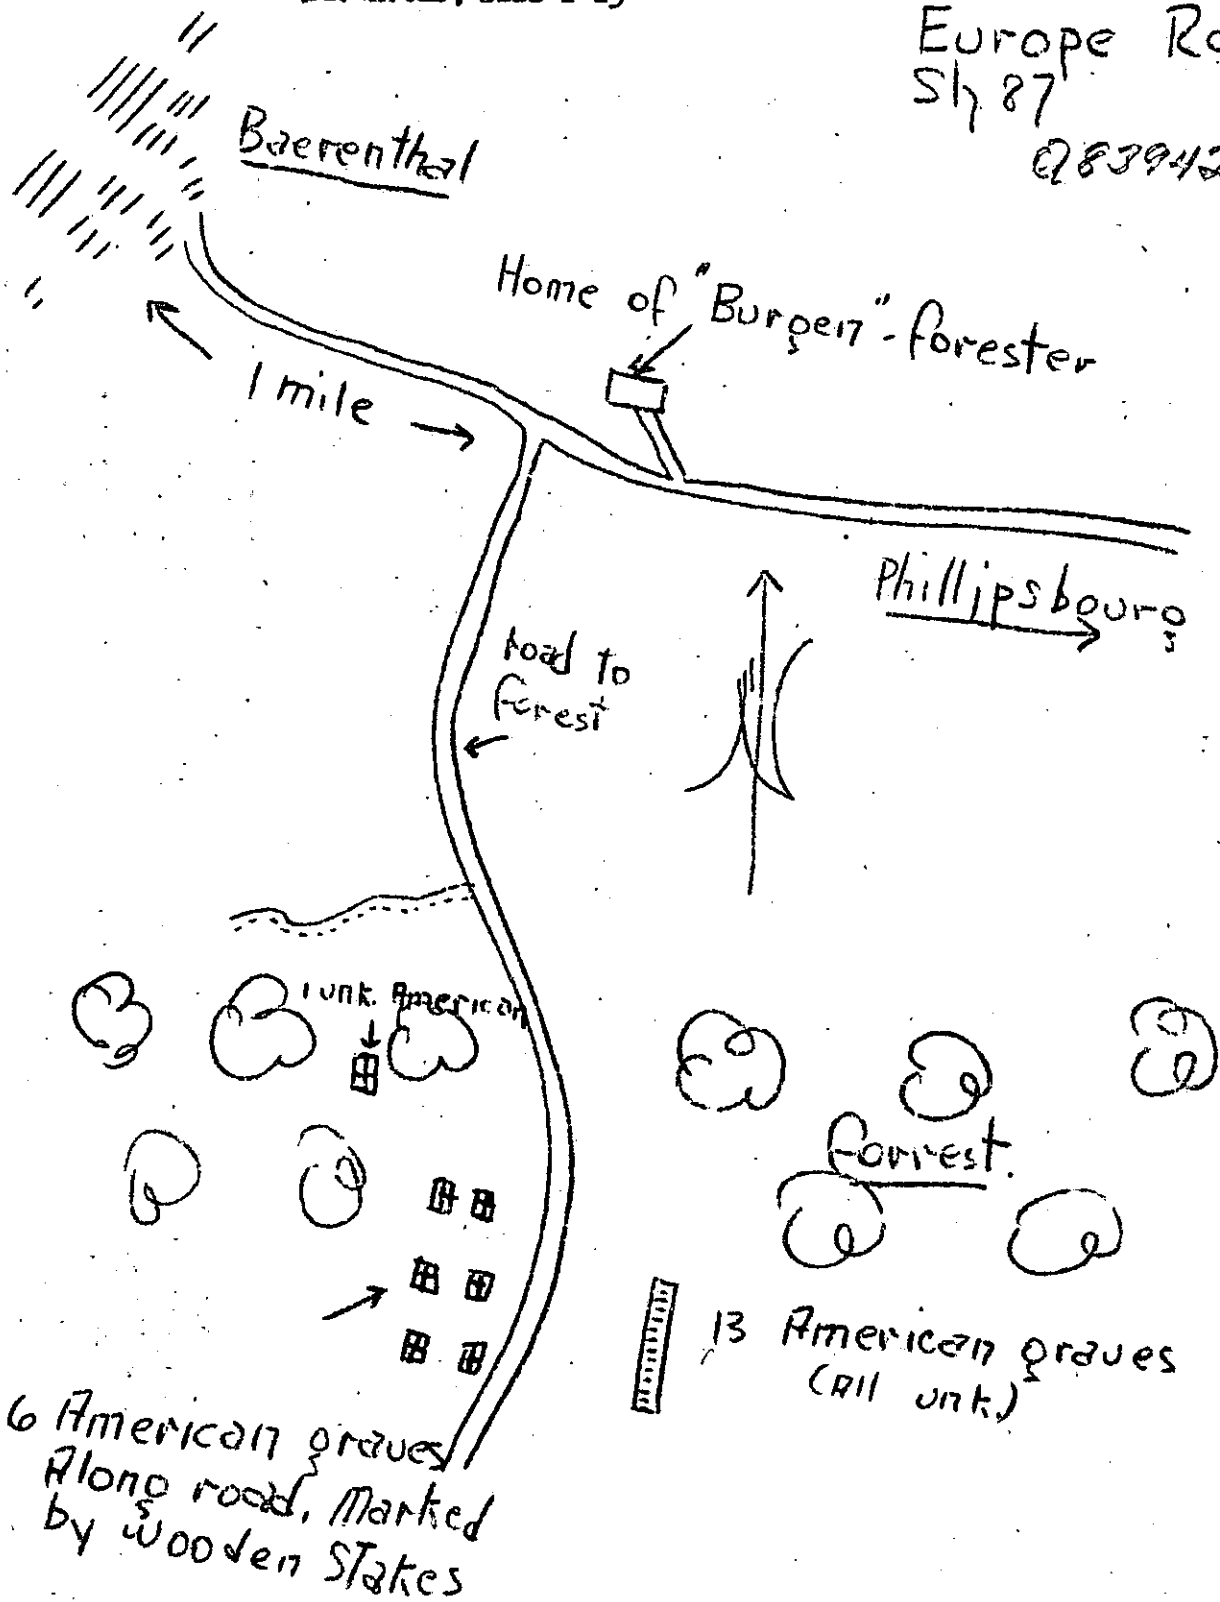 Europe Ro
Sh 87
Q83942
Baerenthal
Home of "Burgen"-forester
1 mile
Phillipsbourg
road to
forest
1 unk. American
Forrest.
13 American graves
(All unk.)
6 American graves
Along road, Marked
by wooden Stakes